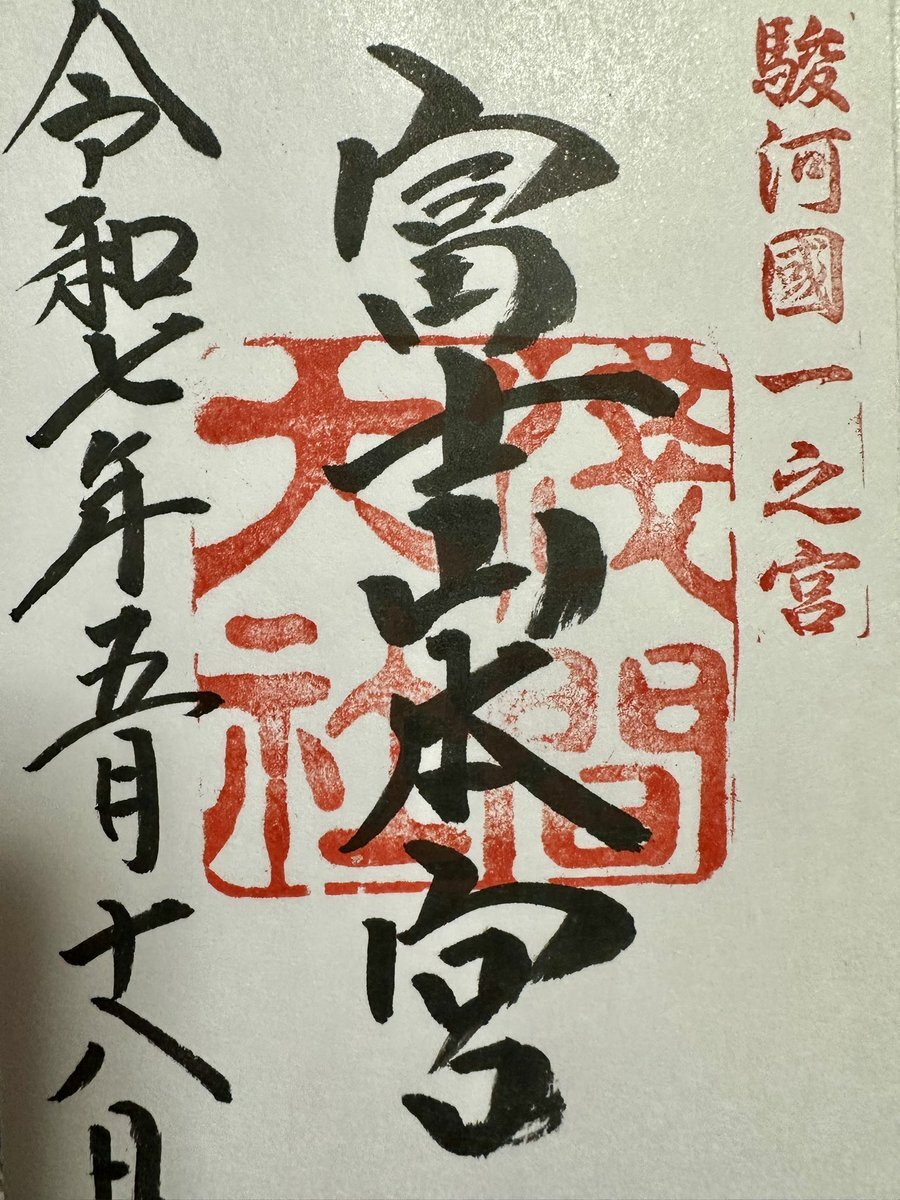 駿河國一之宮
富士山本宮
浅間大社
令和七年五月十八日